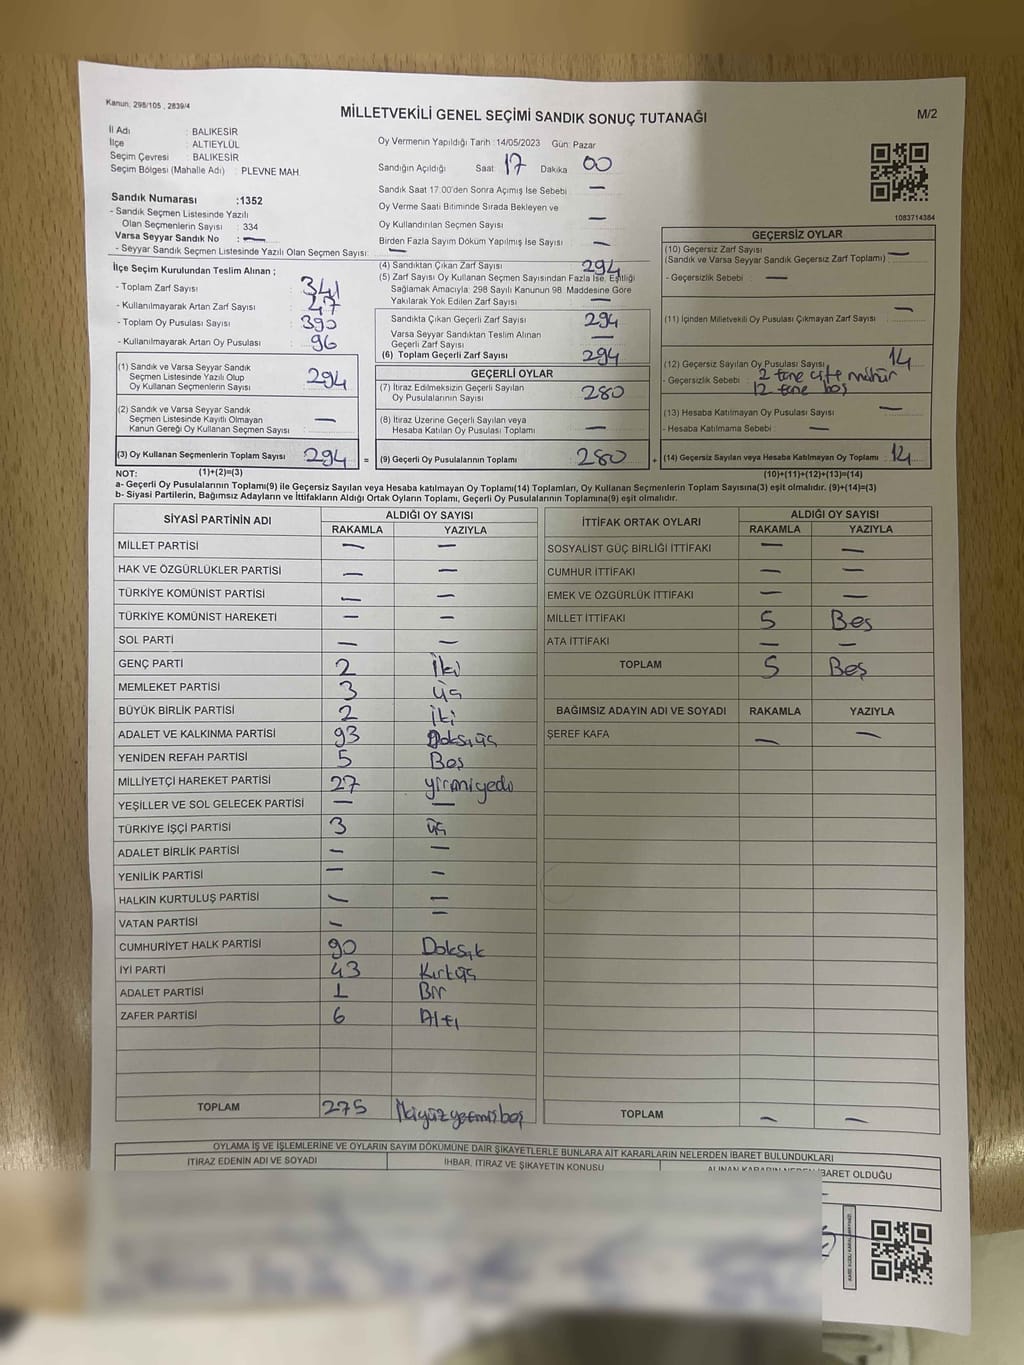 Kanun, 298/105 , 2839/4
MİLLETVEKİLİ GENEL SEÇİMİ SANDIK SONUÇ TUTANAĞI
M/2
İl Adı : BALIKESİR
İlçe : ALTIEYLÜL
Seçim Çevresi : BALIKESİR
Seçim Bölgesi (Mahalle Adı) : PLEVNE MAH.
Sandık Numarası :1352
- Sandık Seçmen Listesinde Yazılı
Olan Seçmenlerin Sayısı : 334
Varsa Seyyar Sandık No : —
- Seyyar Sandık Seçmen Listesinde Yazılı Olan Seçmen Sayısı: —
Oy Vermenin Yapıldığı Tarih :14/05/2023 Gün: Pazar
Sandığın Açıldığı Saat: 17 Dakika 00
Sandık Saat 17.00'den Sonra Açımış İse Sebebi —
Oy Verme Saati Bitiminde Sırada Bekleyen ve
Oy Kullandırılan Seçmen Sayısı —
Birden Fazla Sayım Döküm Yapılmış İse Sayısı —
1083714384
İlçe Seçim Kurulundan Teslim Alınan ;
- Toplam Zarf Sayısı : 341
- Kullanılmayarak Artan Zarf Sayısı : 47
- Toplam Oy Pusulası Sayısı : 390
- Kullanılmayarak Artan Oy Pusulası : 96
(1) Sandık ve Varsa Seyyar Sandık
Seçmen Listesinde Yazılı Olup
Oy Kullanan Seçmenlerin Sayısı : 294
(2) Sandık ve Varsa Seyyar Sandık
Seçmen Listesinde Kayıtlı Olmayan
Kanun Gereği Oy Kullanan Seçmen Sayısı : —
(3) Oy Kullanan Seçmenlerin Toplam Sayısı : 294 =
(4) Sandıktan Çıkan Zarf Sayısı : 294
(5) Zarf Sayısı Oy Kullanan Seçmen Sayısından Fazla İse, Eşitliği
Sağlamak Amacıyla; 298 Sayılı Kanunun 98. Maddesine Göre
Yakılarak Yok Edilen Zarf Sayısı : —
Sandıkta Çıkan Geçerli Zarf Sayısı : 294
Varsa Seyyar Sandıktan Teslim Alınan
Geçerli Zarf Sayısı : —
(6) Toplam Geçerli Zarf Sayısı : 294
GEÇERLİ OYLAR
(7) İtiraz Edilmeksizin Geçerli Sayılan
Oy Pusulalarının Sayısı : 280
(8) İtiraz Üzerine Geçerli Sayılan veya
Hesaba Katılan Oy Pusulası Toplamı : —
(9) Geçerli Oy Pusulalarının Toplamı : 280 +
GEÇERSİZ OYLAR
(10) Geçersiz Zarf Sayısı
(Sandık ve Varsa Seyyar Sandık Geçersiz Zarf Toplamı) : —
- Geçersizlik Sebebi : —
(11) İçinden Milletvekili Oy Pusulası Çıkmayan Zarf Sayısı : —
(12) Geçersiz Sayılan Oy Pusulası Sayısı : 14
- Geçersizlik Sebebi : 2 tane çift mühür
12 tane boş
(13) Hesaba Katılmayan Oy Pusulası Sayısı : —
- Hesaba Katılmama Sebebi : —
(14) Geçersiz Sayılan veya Hesaba Katılmayan Oy Toplamı : 14
NOT: (1)+(2)=(3) (10)+(11)+(12)+(13)=(14)
a- Geçerli Oy Pusulalarının Toplamı(9) ile Geçersiz Sayılan veya Hesaba katılmayan Oy Toplamı(14) Toplamları, Oy Kullanan Seçmenlerin Toplam Sayısına(3) eşit olmalıdır. (9)+(14)=(3)
b- Siyasi Partilerin, Bağımsız Adayların ve İttifakların Aldığı Ortak Oyların Toplamı, Geçerli Oy Pusulalarının Toplamına(9) eşit olmalıdır.
SİYASİ PARTİNİN ADI ALDIĞI OY SAYISI
RAKAMLA YAZIYLA
MİLLET PARTİSİ — —
HAK VE ÖZGÜRLÜKLER PARTİSİ — —
TÜRKİYE KOMÜNİST PARTİSİ — —
TÜRKİYE KOMÜNİST HAREKETİ — —
SOL PARTİ — —
GENÇ PARTİ 2 İki
MEMLEKET PARTİSİ 3 üç
BÜYÜK BİRLİK PARTİSİ 2 İki
ADALET VE KALKINMA PARTİSİ 93 Doksüç
YENİDEN REFAH PARTİSİ 5 Beş
MİLLİYETÇİ HAREKET PARTİSİ 27 yirmiyedi
YEŞİLLER VE SOL GELECEK PARTİSİ — —
TÜRKİYE İŞÇİ PARTİSİ 3 üç
ADALET BİRLİK PARTİSİ — —
YENİLİK PARTİSİ — —
HALKIN KURTULUŞ PARTİSİ — —
VATAN PARTİSİ — —
CUMHURİYET HALK PARTİSİ 90
İYİ PARTİ 43 Kırküç
ADALET PARTİSİ 1 Bir
ZAFER PARTİSİ 6 Altı
TOPLAM 275 İkiyüzyetmişbeş
İTTİFAK ORTAK OYLARI ALDIĞI OY SAYISI
RAKAMLA YAZIYLA
SOSYALİST GÜÇ BİRLİĞİ İTTİFAKI — —
CUMHUR İTTİFAKI — —
EMEK VE ÖZGÜRLÜK İTTİFAKI — —
MİLLET İTTİFAKI 5 Beş
ATA İTTİFAKI — —
TOPLAM 5 Beş
BAĞIMSIZ ADAYIN ADI VE SOYADI RAKAMLA YAZIYLA
ŞEREF KAFA — —
TOPLAM — —
OYLAMA İŞ VE İŞLEMLERİNE VE OYLARIN SAYIM DÖKÜMÜNE DAİR ŞİKAYETLERLE BUNLARA AİT KARARLARIN NELERDEN İBARET BULUNDUKLARI
İTİRAZ EDENİN ADI VE SOYADI İHBAR, İTİRAZ VE ŞİKAYETİN KONUSU ALINAN KARARIN NEDEN İBARET OLDUĞU